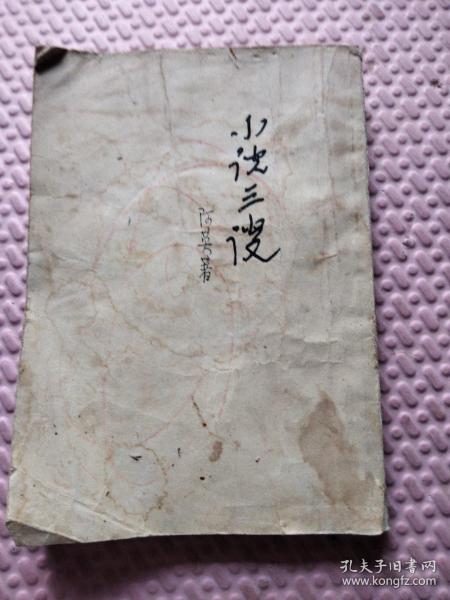 小说三谈
阿英著
孔夫子旧书网
www.kongfz.com